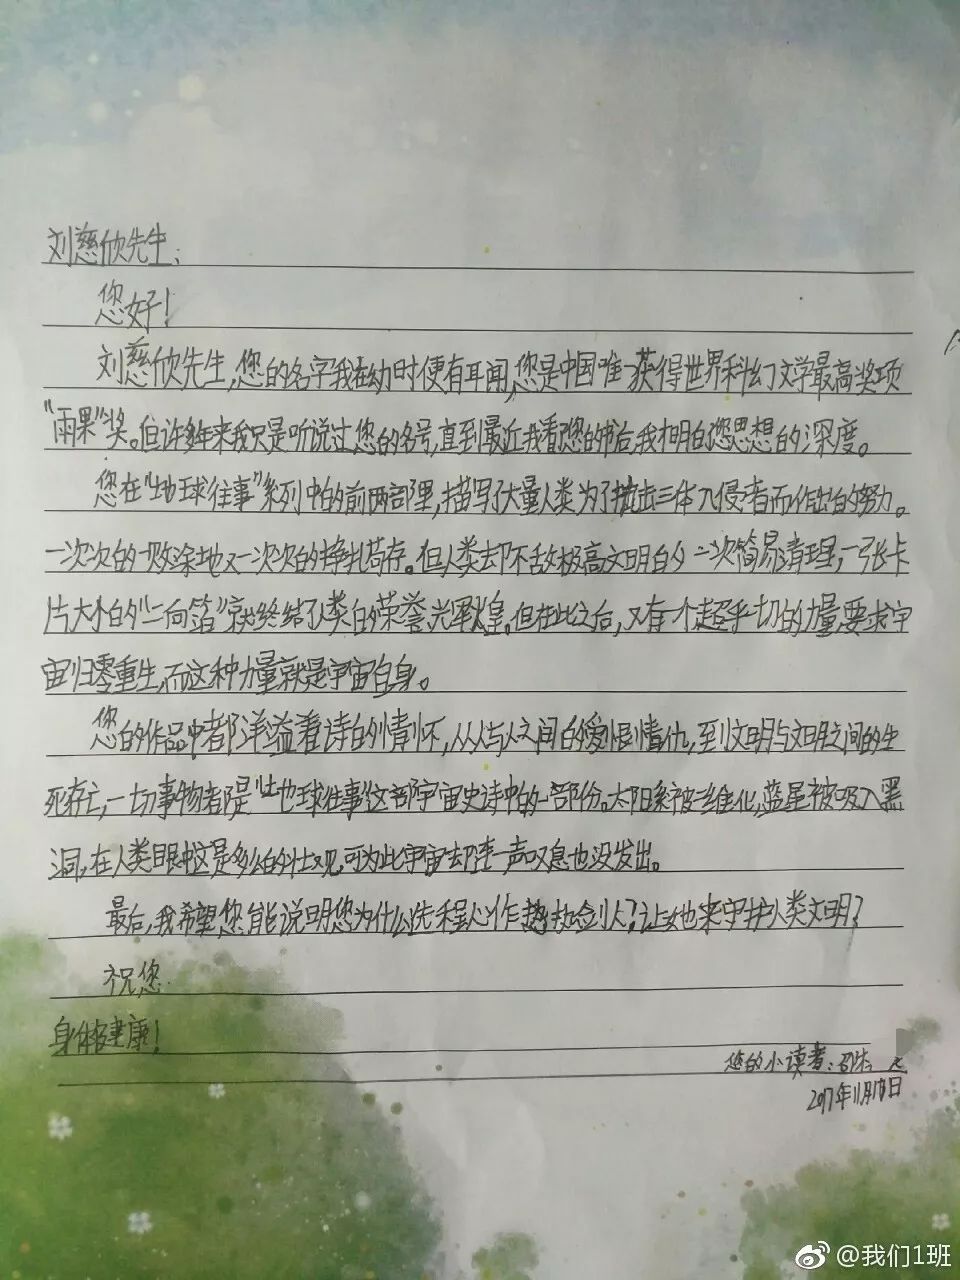 刘慈欣先生:
您好!
刘慈欣先生,您的名字我在幼时便有耳闻,您是中国唯一获得世界科幻文学最高奖项
"雨果"奖。但许多年来我只是听说过您的名号,直到最近我看您的书后,我才明白您思想的深度。
您在"地球往事"系列中的前两部里,描写了大量人类为了抗击三体入侵者而作出的努力。
一次次的一败涂地又一次次的挣扎苟存。但人类却不敌极高文明的一次简易清理,一张卡
片大小的"二向箔"就终结了人类的荣誉、光辉煌。但在此之后,又有一个超乎一切的力量要求宇
宙归零重生,而这种力量就是宇宙自身。
您的作品中都洋溢着诗的情怀,从人与人之间的爱恨情仇,到文明与文明之间的生
死存亡,一切事物都是"地球往事"这部宇宙史诗中的一部份。太阳系被二维化,蓝星被吸入黑
洞,在人类眼中这是多么的壮观,可为此宇宙却连一声叹息也没发出。
最后,我希望您能说明您为什么选程心作执剑人?让她来守护人类文明?
祝您
身体健康!
您的小读者:
2017年11月18日
@我们1班